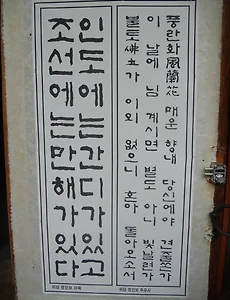 풍란화風蘭花 매운 향내 당신에야 견줄손가
이 날에 님 계시면 별도 아니 빛날런가
불토佛土가 이외 없으니 혼아 돌아오소서
위당 정인보 추모시
인도에는간디가있고
조선에는만해가있다
위당 정인보 어록